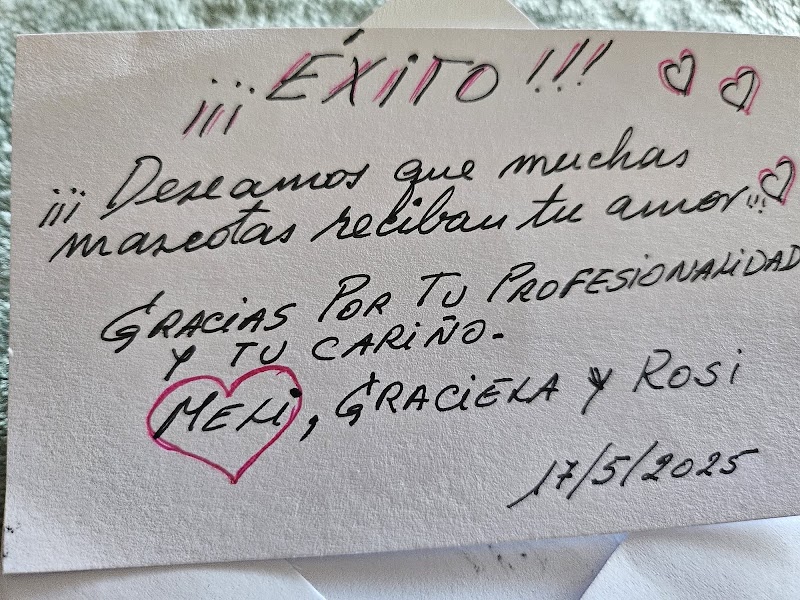 ¡¡¡ÉXITO!!!
¡¡¡Deseamos que muchas
mascotas reciban tu amor!!!
GRACIAS POR TU PROFESIONALIDAD
Y TU CARIÑO.
MELI, GRACIELA Y ROSI
17/5/2025